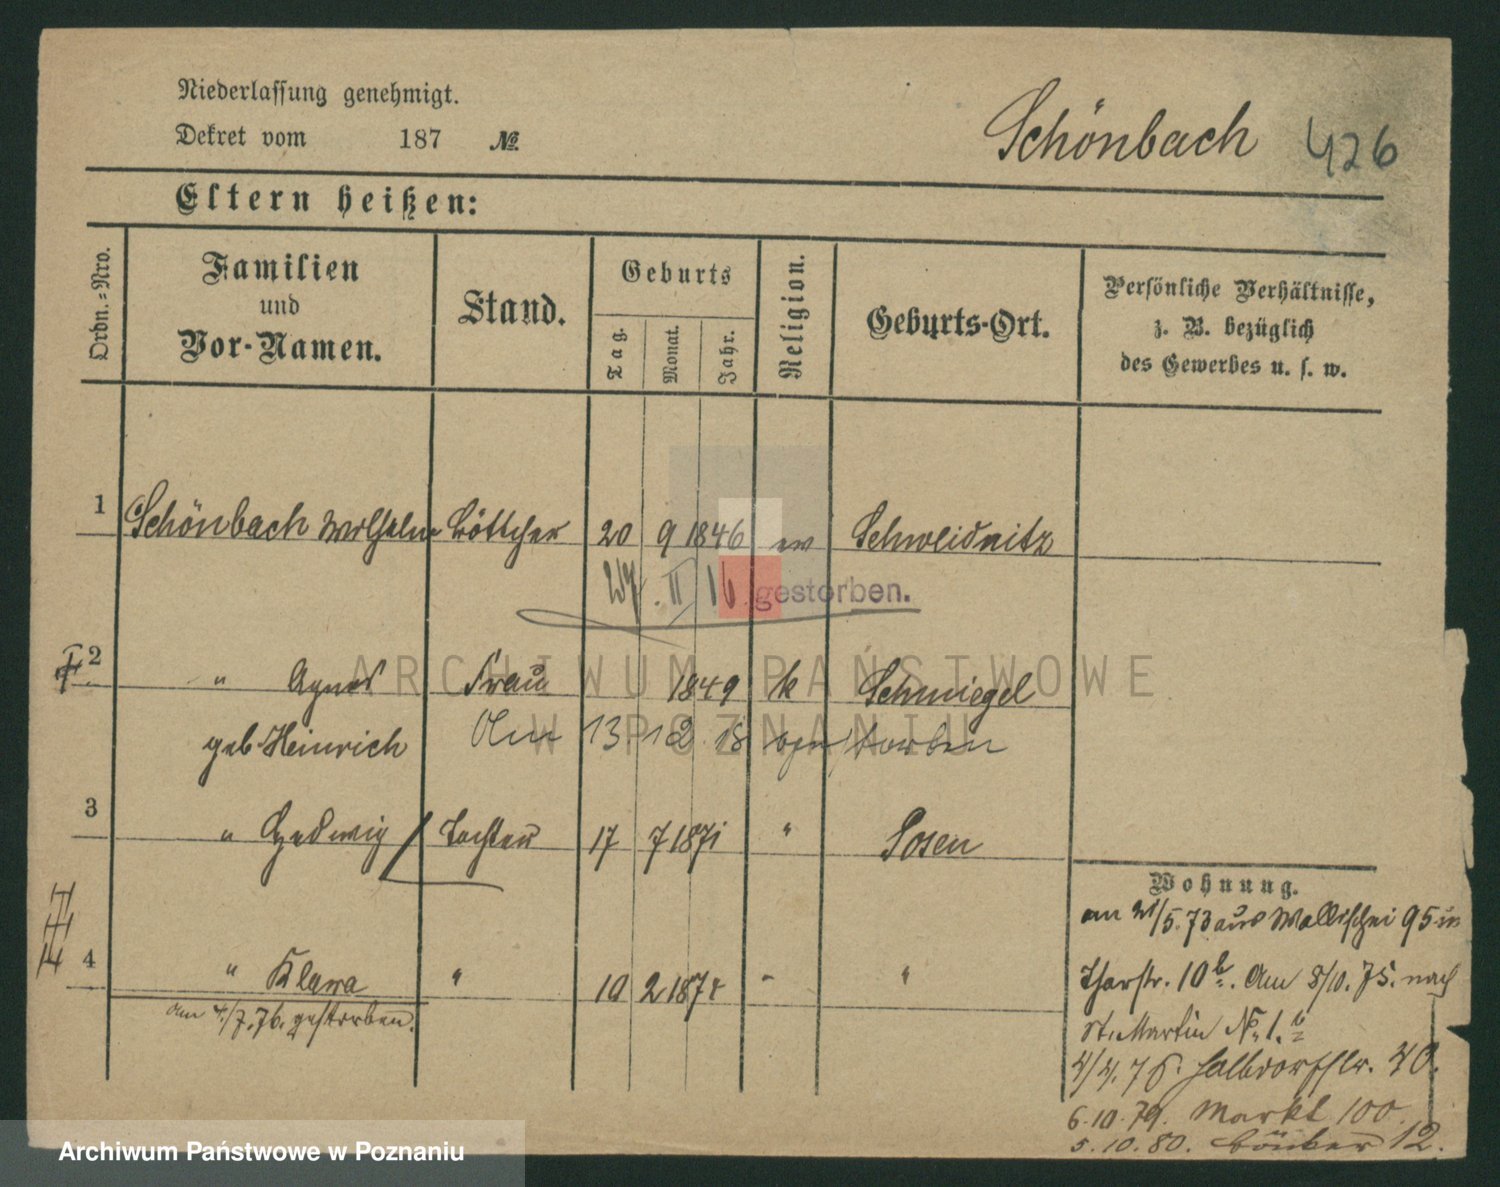 Niederlassung genehmigt.
Dekret vom 187 №
Schönbach 426
Eltern heißen:
Ordn.-Nro.
Familien und Vor-Namen.
Stand.
Geburts
Tag. Monat. Jahr.
Religion.
Geburts-Ort.
Persönliche Verhältnisse, z. B. bezüglich des Gewerbes u. s. w.
1 Schönbach Wilhelm Böttcher 20 9 1846 ev Schweidnitz
27. II 16 gestorben.
2 " Agnes Frau 1849 k Schmiegel
geb. Heinrich Am 13 12 18 gestorben
3 " Hedwig Tochter 17 7 1871 " Posen
4 " Klara " 10 2 187 " "
am 4/7. 76. gestorben.
Wohnung.
am /5. 73 aus Wallischei 95 in
Thorstr. 10 b. Am 8/10. 75. nach
St. Martin No. 1. b
4/4. 76. Halbdorfstr. 40.
6.10.79. Markt 100.
5.10.80. 12.
ARCHIWUM PAŃSTWOWE
W POZNANIU
Archiwum Państwowe w Poznaniu